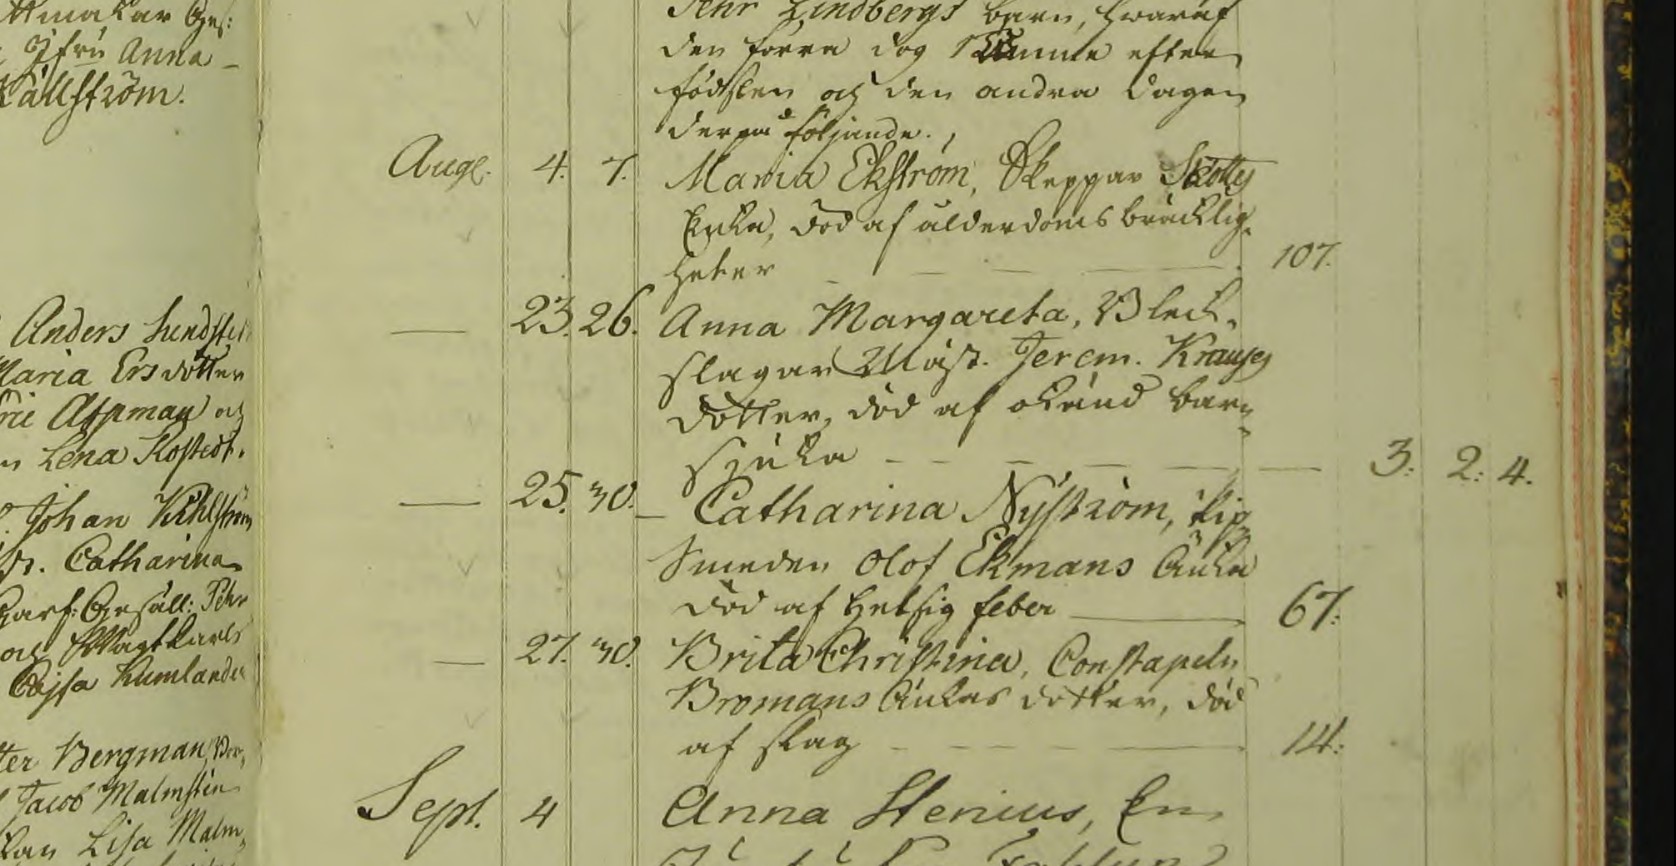 ttmakar Ges:
Jfru Anna
Källström.
Anders Lundstet
Maria Ersdotter
Aspman och
Lena Rostedt.
Johan Kihlström
Catharina
Garf: Gesäll: Pehr
och Wagtkarls
Cajsa Kumlander
ter Bergman
Jacob Malmsten
kan Lisa Malm
Pehr Lindbergs barn, hvaraf
den förra dog 1 timme efter
födslen och den andra dagen
derpå följande.
Aug. 4. 7. Maria Ekström, Skeppar Skottes
Enka, död af ålderdoms bräcklig-
heter 107.
23. 26. Anna Margareta, Bleck-
slagar Mäst. Jerem. Krauses
dotter, död af okänd barn
sjuka 3: 2: 4.
25. 30. Catharina Nyström,
Smeden Olof Ekmans Änka
död af hetsig feber 67:
27. 30. Brita Christina, Constapeln
Bromans Änkas dotter, död
af slag 14:
Sept. 4 Anna Stenius, En